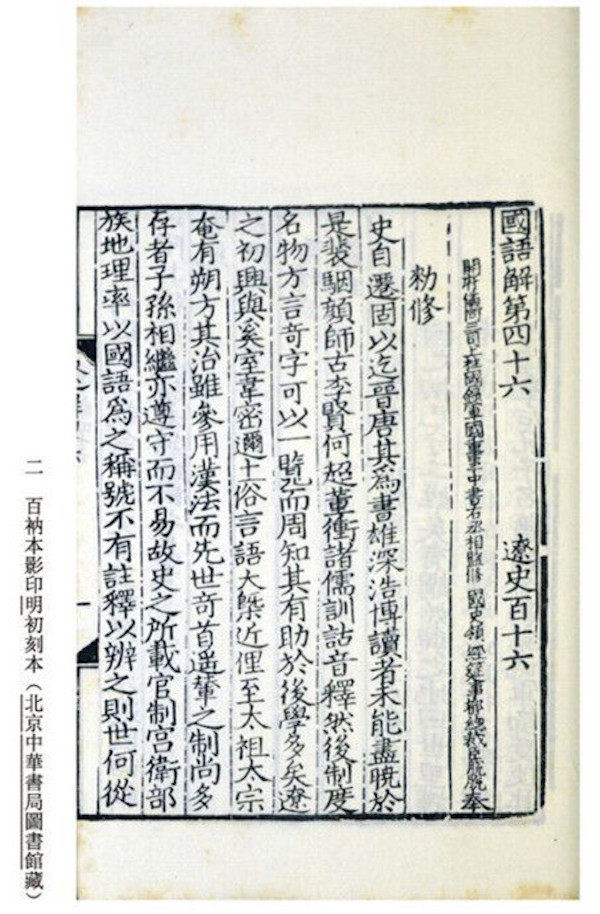 國語解第四十六 遼史百十六
開府儀同三司上柱國錄軍國重事中書右丞相監修 國史領 經筵事都總裁臣脫脫奉
勑修
史自遷固以迄晉唐其爲書雄深浩博讀者未能盡曉於
是裴駰顔師古李賢何超董衝諸儒訓詁音釋然後制度
名物方言奇字可以一覽而周知其有助於後學多矣遼
之初興與奚室韋密邇土俗言語大槩近俚至太祖太宗
奄有朔方其治雖參用漢法而先世奇首遥輦之制尚多
存者子孫相繼亦遵守而不易故史之所載官制宫衛部
族地理率以國語爲之稱號不有註釋以辨之則世何從
二 百衲本影印明初刻本（北京中華書局圖書館藏）